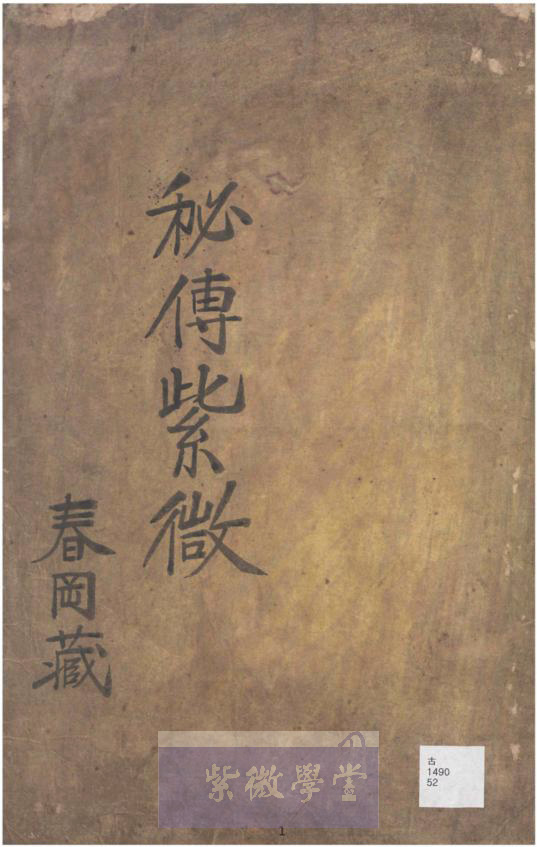 秘傳紫微
春岡藏
紫微學堂
古
1490
52
1